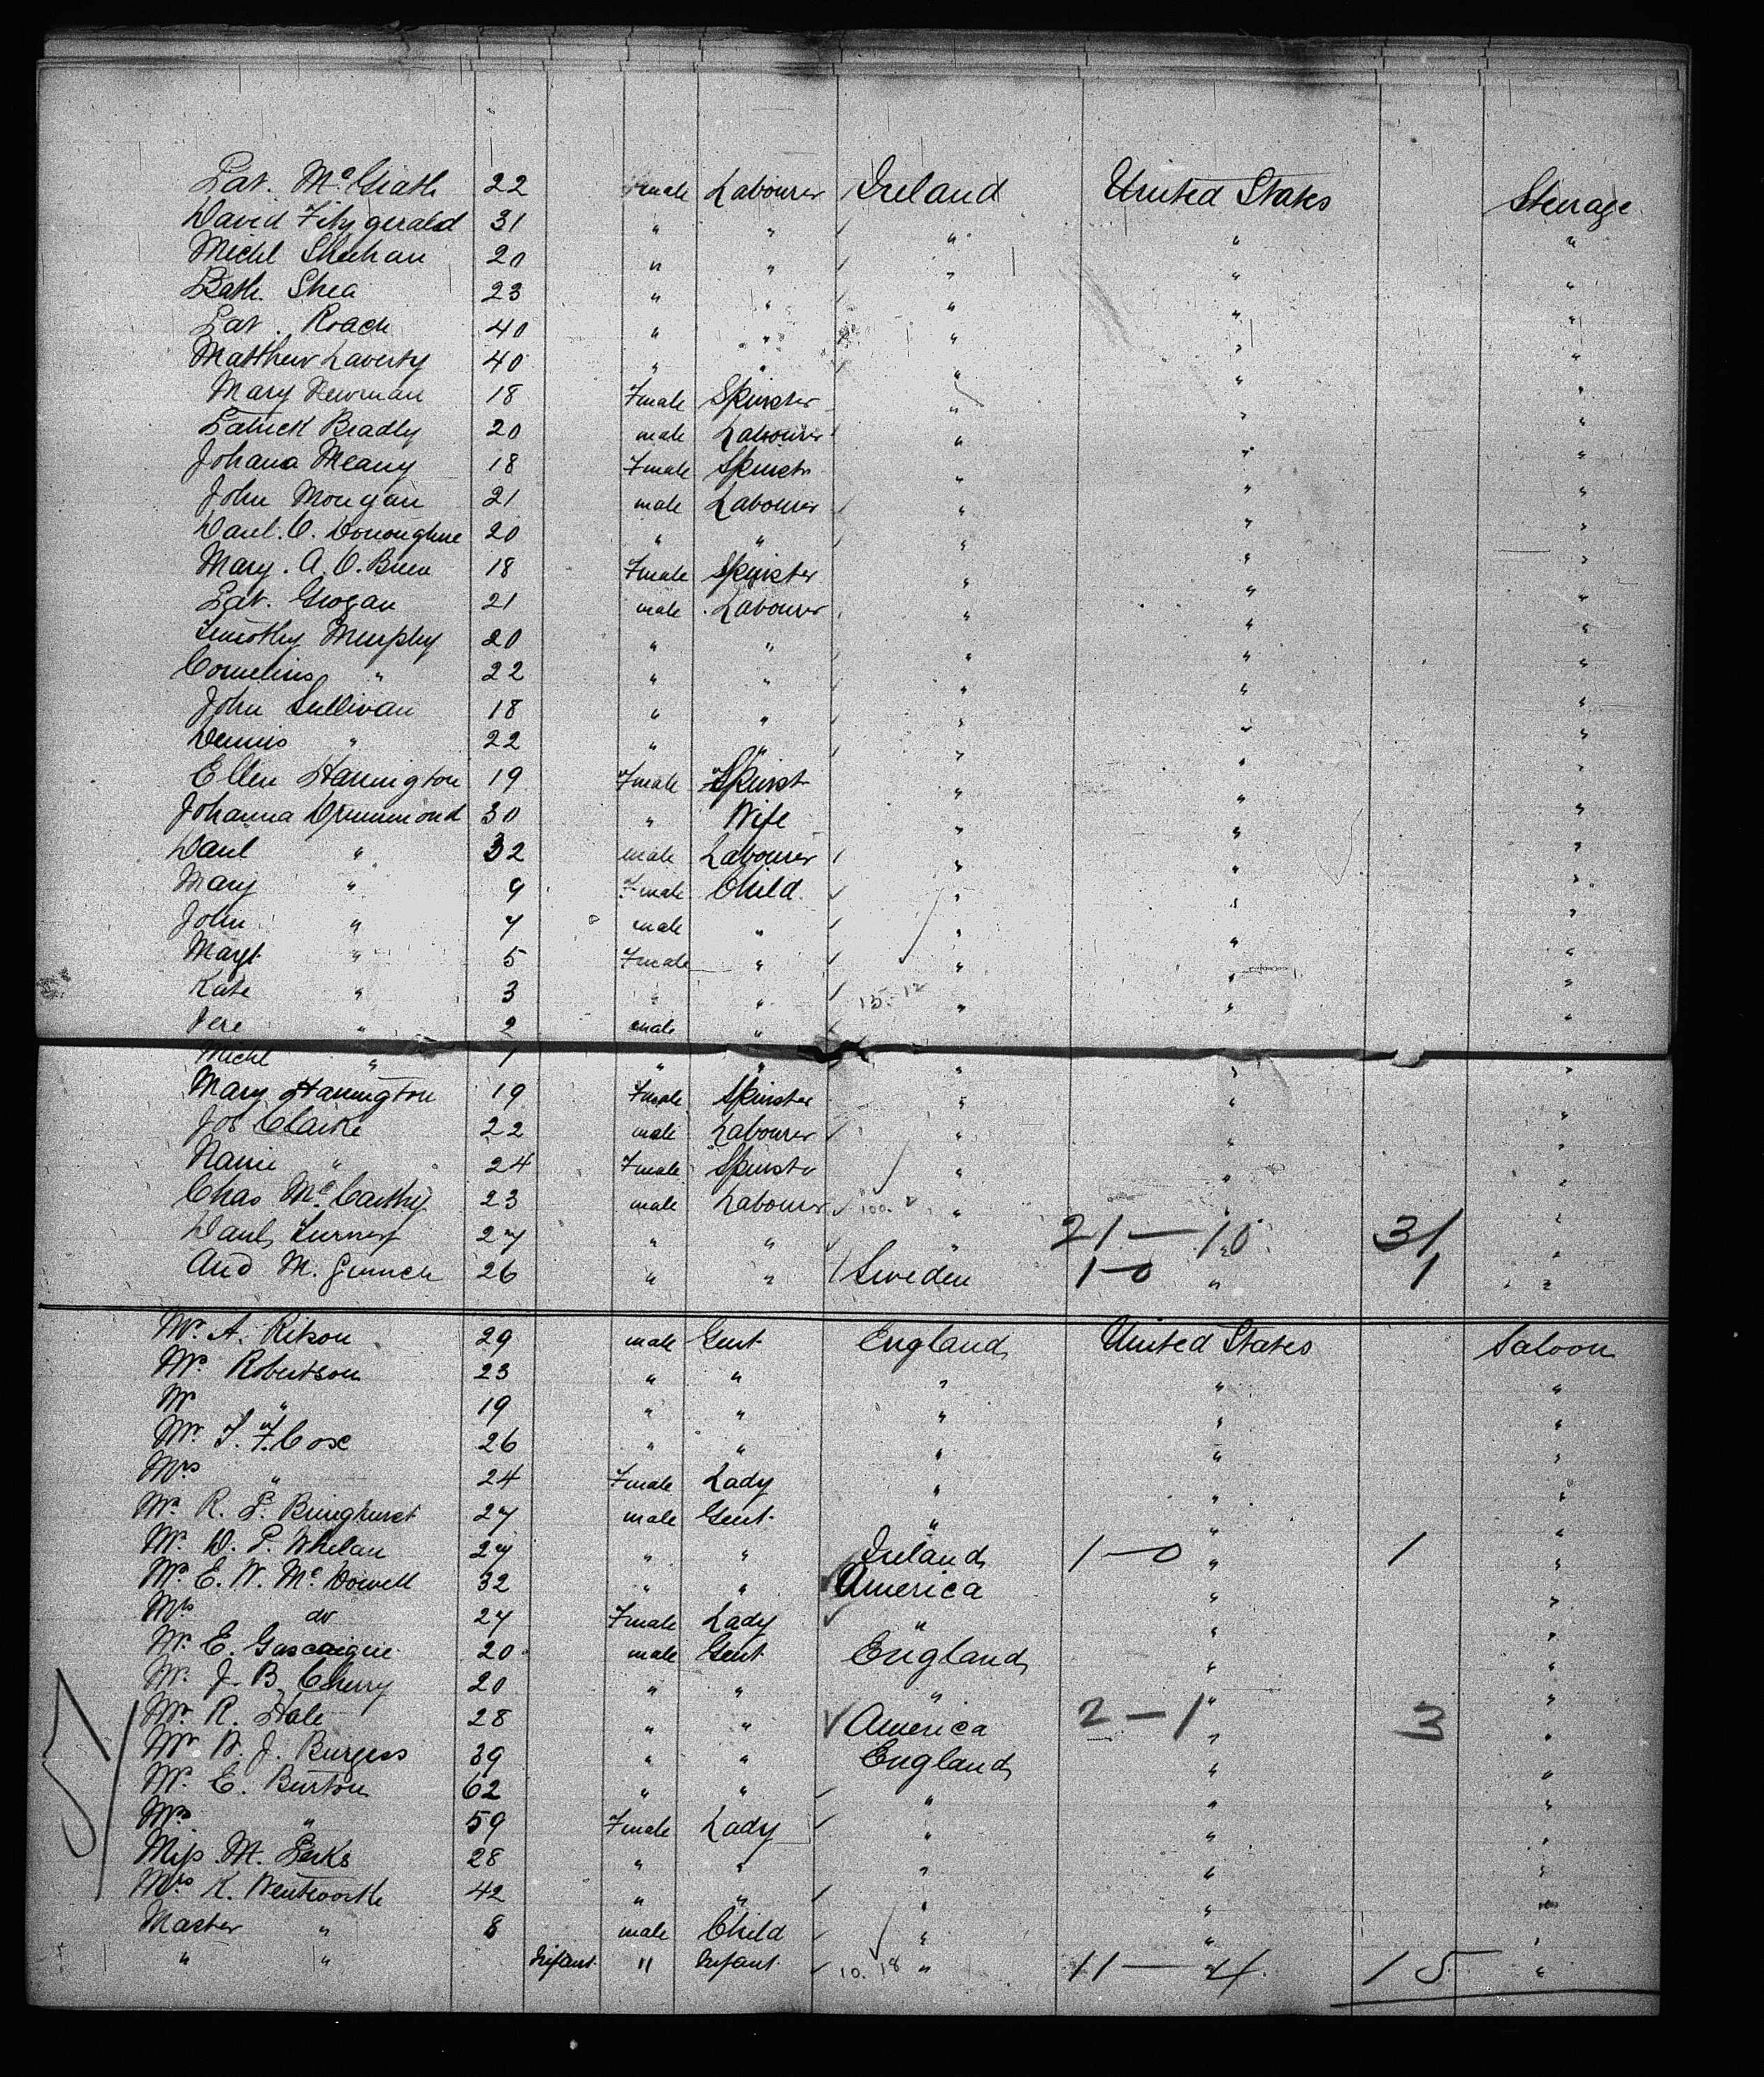 Pat. McGrath 22 male Labourer Ireland United States Steerage
David Fitzgerald 31 " " " " "
Michl Sheehan 20 " " " " "
Bath. Shea 23 " " " " "
Pat. Roach 40 " " " " "
Matthew Laverty 40 " " " " "
Mary Newman 18 Female Spinster " " "
Patrick Bradly 20 male Labourer " " "
Johana Meany 18 Female Spinstr " " "
John Mongan 21 male Labourer " " "
Danl. O. Donoughue 20 " " " " "
Mary. A. O. Brien 18 Female Spinster " " "
Pat. Grogan 21 male Labourer " " "
Timothy Murphy 20 " " " " "
Cornelius " 22 " " " " "
John Sullivan 18 " " " " "
Dennis " 22 " " " " "
Ellen Harrington 19 Female Spinst " " "
Johanna Drummond 30 " Wife " " "
Danl " 32 male Labourer " " "
Mary " 9 Female Child " " "
John " 7 male " " " "
Margt " 5 Female " " " "
Kate " 3 " " 15.12 " " "
Jere " 2 male "
Michl " 1 " " " " "
Mary Harrington 19 Female Spinster " " "
Jos Clarke 22 male Labourer " " "
Nannie " 24 Female Spinstr " " "
Chas McCarthy 23 male Labourer " " "
Danl Turner 27 " " " 21 — 10 " 31
And M. 26 " " Sweden 1 — 0 " 1 "
Mr. A. Ritson 29 male Gent England United States Saloon
Mr. Robertson 23 " " " " "
Mr " 19 " " " " "
Mr. T. F. Cose 26 " " " " "
Mrs " 24 Female Lady " " "
Mr. R. P. Bringhurst 27 male Gent " " "
Mr. D. P. Whelan 27 " " Ireland 1 — 0 " 1 "
Mr. E. W. McDowell 32 " " America " "
Mrs do 27 Female Lady " " "
Mr. E. Gascaigne 20 male Gent England " "
Mr. J. B. Cherry 20 " " " " "
Mr. R. Hale 28 " " America 2 — 1 " 3 "
Mr W. J. Burgess 39 " " England " "
Mr. E. Burton 62 " " " " "
Mrs. " 59 Female Lady " " "
Miss M. Perks 28 " " " " "
Mrs K. Wentworth 42 " " " " "
Master " 8 male Child " " "
" " Infant " Infant 10.18 " 11 — 4 15 "